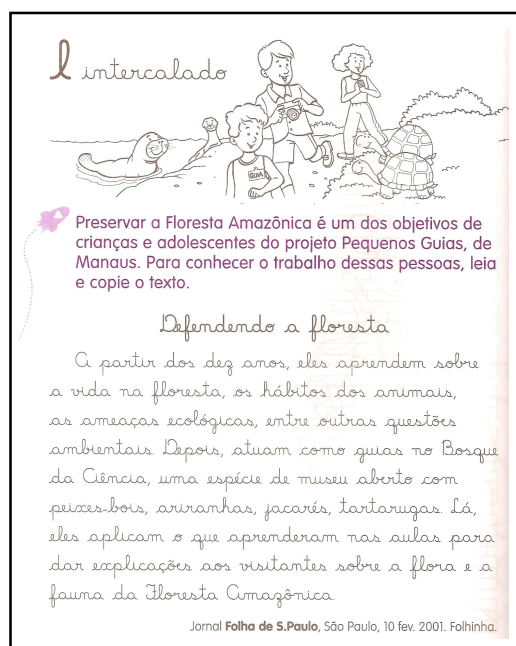 l intercalado
GUIA
Preservar a Floresta Amazônica é um dos objetivos de
crianças e adolescentes do projeto Pequenos Guias, de
Manaus. Para conhecer o trabalho dessas pessoas, leia
e copie o texto.
Defendendo a floresta
A partir dos dez anos, eles aprendem sobre
a vida na floresta, os hábitos dos animais,
as ameaças ecológicas, entre outras questões
ambientais. Depois, atuam como guias no Bosque
da Ciência, uma espécie de museu aberto com
peixes-bois, ariranhas, jacarés, tartarugas. Lá,
eles aplicam o que aprenderam nas aulas para
dar explicações aos visitantes sobre a flora e a
fauna da Floresta Amazônica.
Jornal Folha de S.Paulo, São Paulo, 10 fev. 2001. Folhinha.